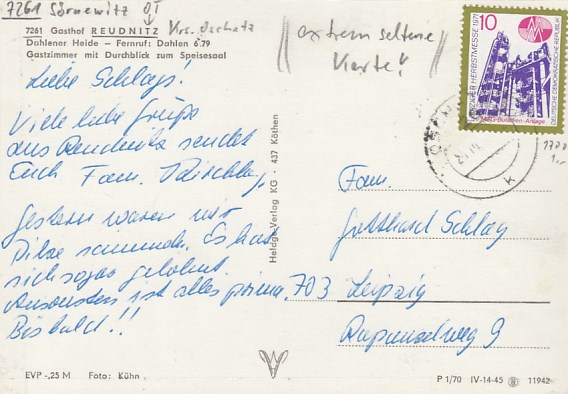 7261 Sörnewitz OT
Krs. Oschatz
extrem seltene
Karte!
7261 Gasthof REUDNITZ
Dahlener Heide – Fernruf: Dahlen 6 79
Gastzimmer mit Durchblick zum Speisesaal
10
LEIPZIGER HERBSTMESSE 1971
DEUTSCHE DEMOKRATISCHE REPUBLIK
Butadien-Anlage
Liebe Schlags!
Viele liebe Grüße
aus Reudnitz sendet
Euch Fam.
Gestern waren wir
Pilze sammeln. Es hat
sich sogar gelohnt.
Ansonsten ist alles prima.
Bis bald!!
Heldge-Verlag KG · 437 Köthen
Fam.
Gotthard Schlag
703 Leipzig
Rapunzelweg 9
EVP -,25 M Foto: Kühn
P 1/70 IV-14-45 11942